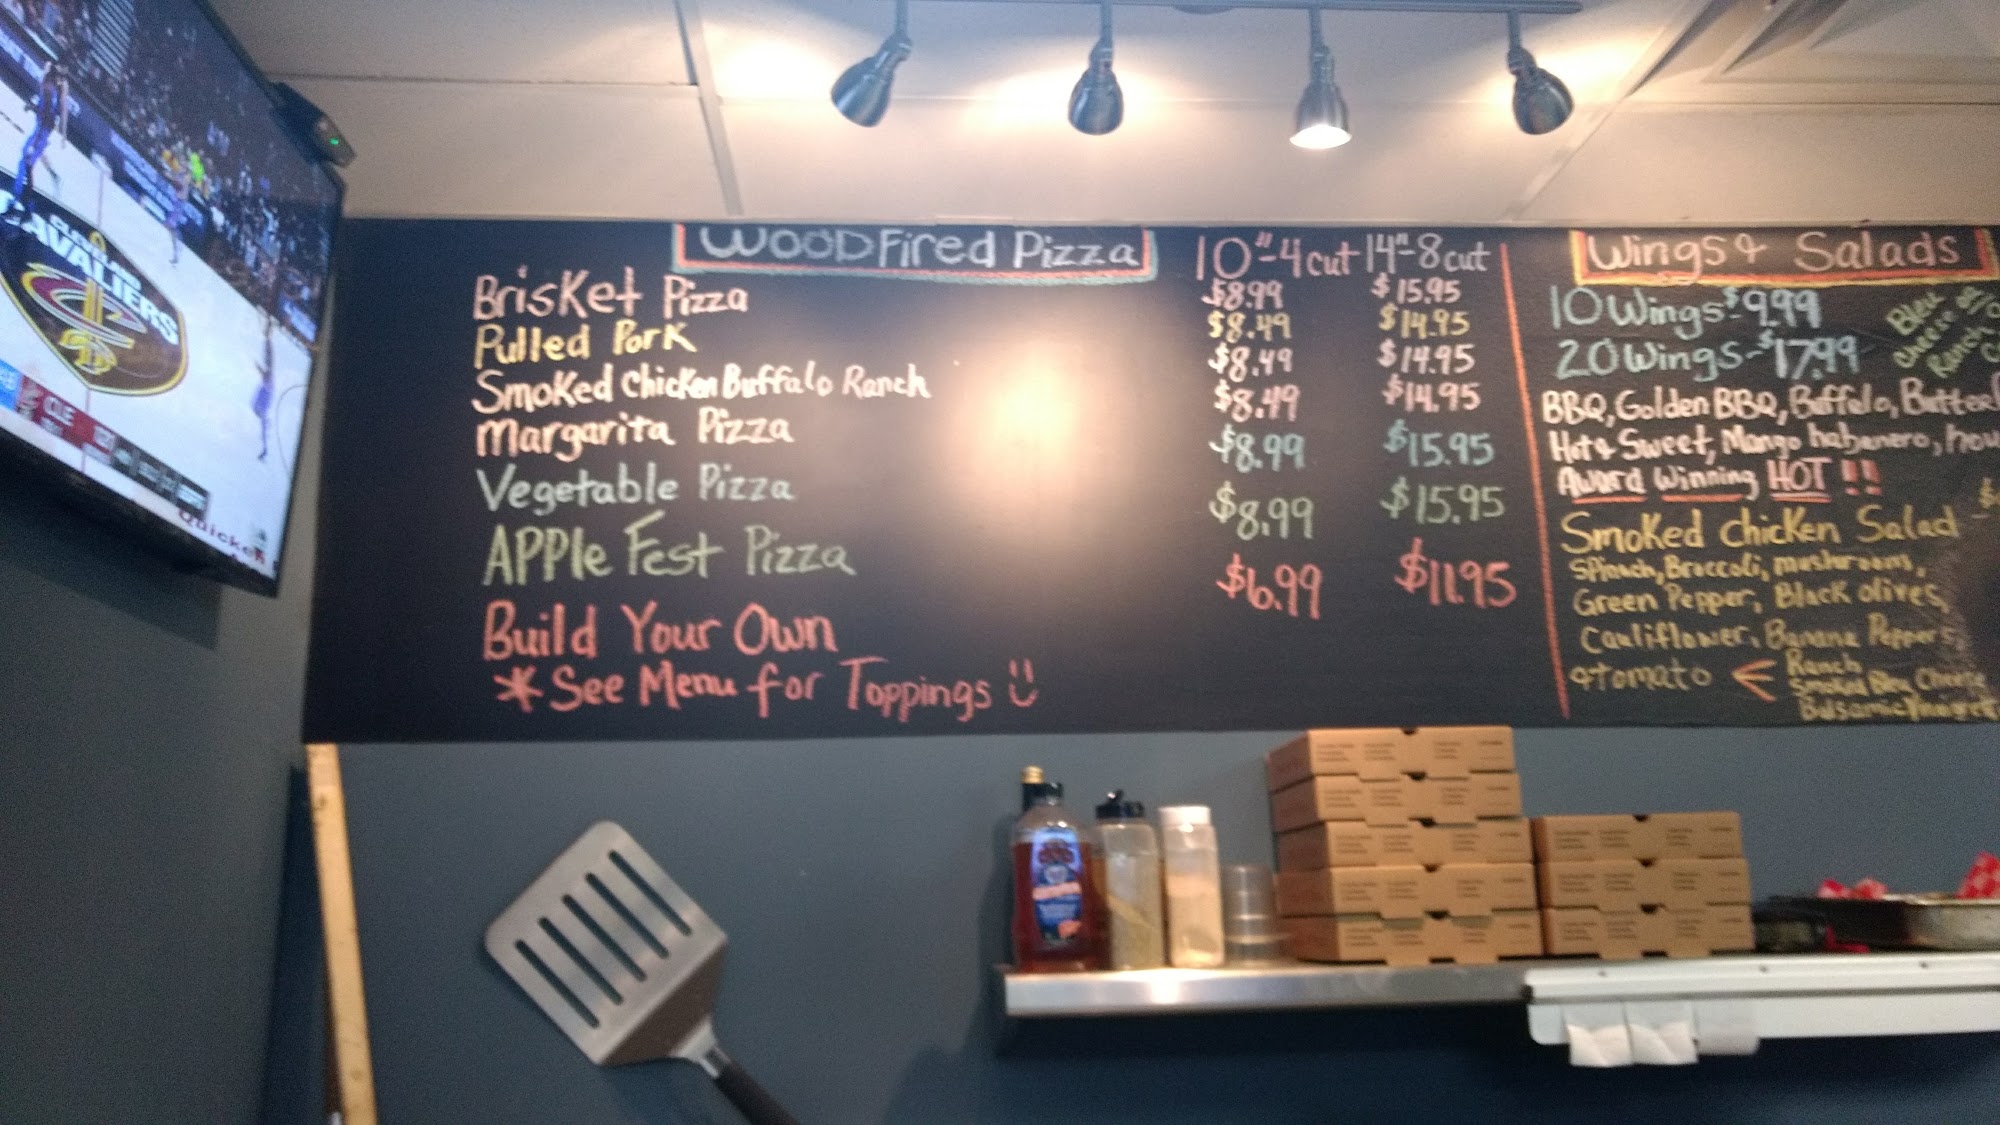 WOOD Fired Pizza
10"-4cut 14"-8cut
Brisket Pizza $8.99 $15.95
Pulled Pork $8.49 $14.95
Smoked Chicken Buffalo Ranch $8.49 $14.95
Margarita Pizza $8.49 $14.95
Vegetable Pizza $8.99 $15.95
APPle Fest Pizza $8.99 $15.95
Build Your Own $6.99 $11.95
*See Menu for Toppings
Wings & Salads
10 Wings-$9.99
20 Wings-$17.99
Bleu
Cheese or
Ranch
BBQ, Golden BBQ, Buffalo,
Hot & Sweet, Mango habanero,
Award Winning HOT !!
Smoked Chicken Salad
Spinach, Broccoli, mushrooms,
Green Pepper, Black olives,
Cauliflower, Banana Peppers
&Tomato
Ranch
Smoked Bleu Cheese
Balsamic
CLEVELAND
CAVALIERS
CLE
Quicken